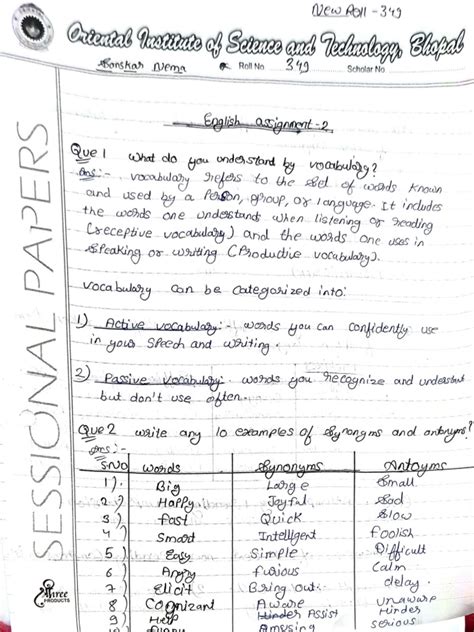 New Roll - 349
Oriental Institute of Science and Technology, Bhopal
Sanskar Nema Roll No 349 Scholar No
SESSIONAL PAPERS
English assignment-2
Que 1 What do you understand by vocabulary?
Ans:- vocabulary refers to the set of words known
and used by a Person, group, or language. It includes
the words one understands when listening or reading
(receptive vocabulary) and the words one uses in
speaking or writing (Productive vocabulary).
vocabulary can be categorized into:
1) Active vocabulary:- words you can confidently use
in your speech and writing.
2) Passive vocabulary: words you recognize and understand
but don't use often.
Que 2 write any 10 examples of synonyms and antonyms?
Ans:-
SNo words Synonyms Antoyms
1) Big Large Small
2) Happy Joyful Sad
3) fast Quick Slow
4) Smart Intelligent foolish
5) Easy Simple Difficult
6) Angry furious Calm
7 Elicit Bring out. delay
8) Cognizant Aware unaware
9) Help Hinder Assist Hinder
funny Amusing serious
Shree
PRODUCTS